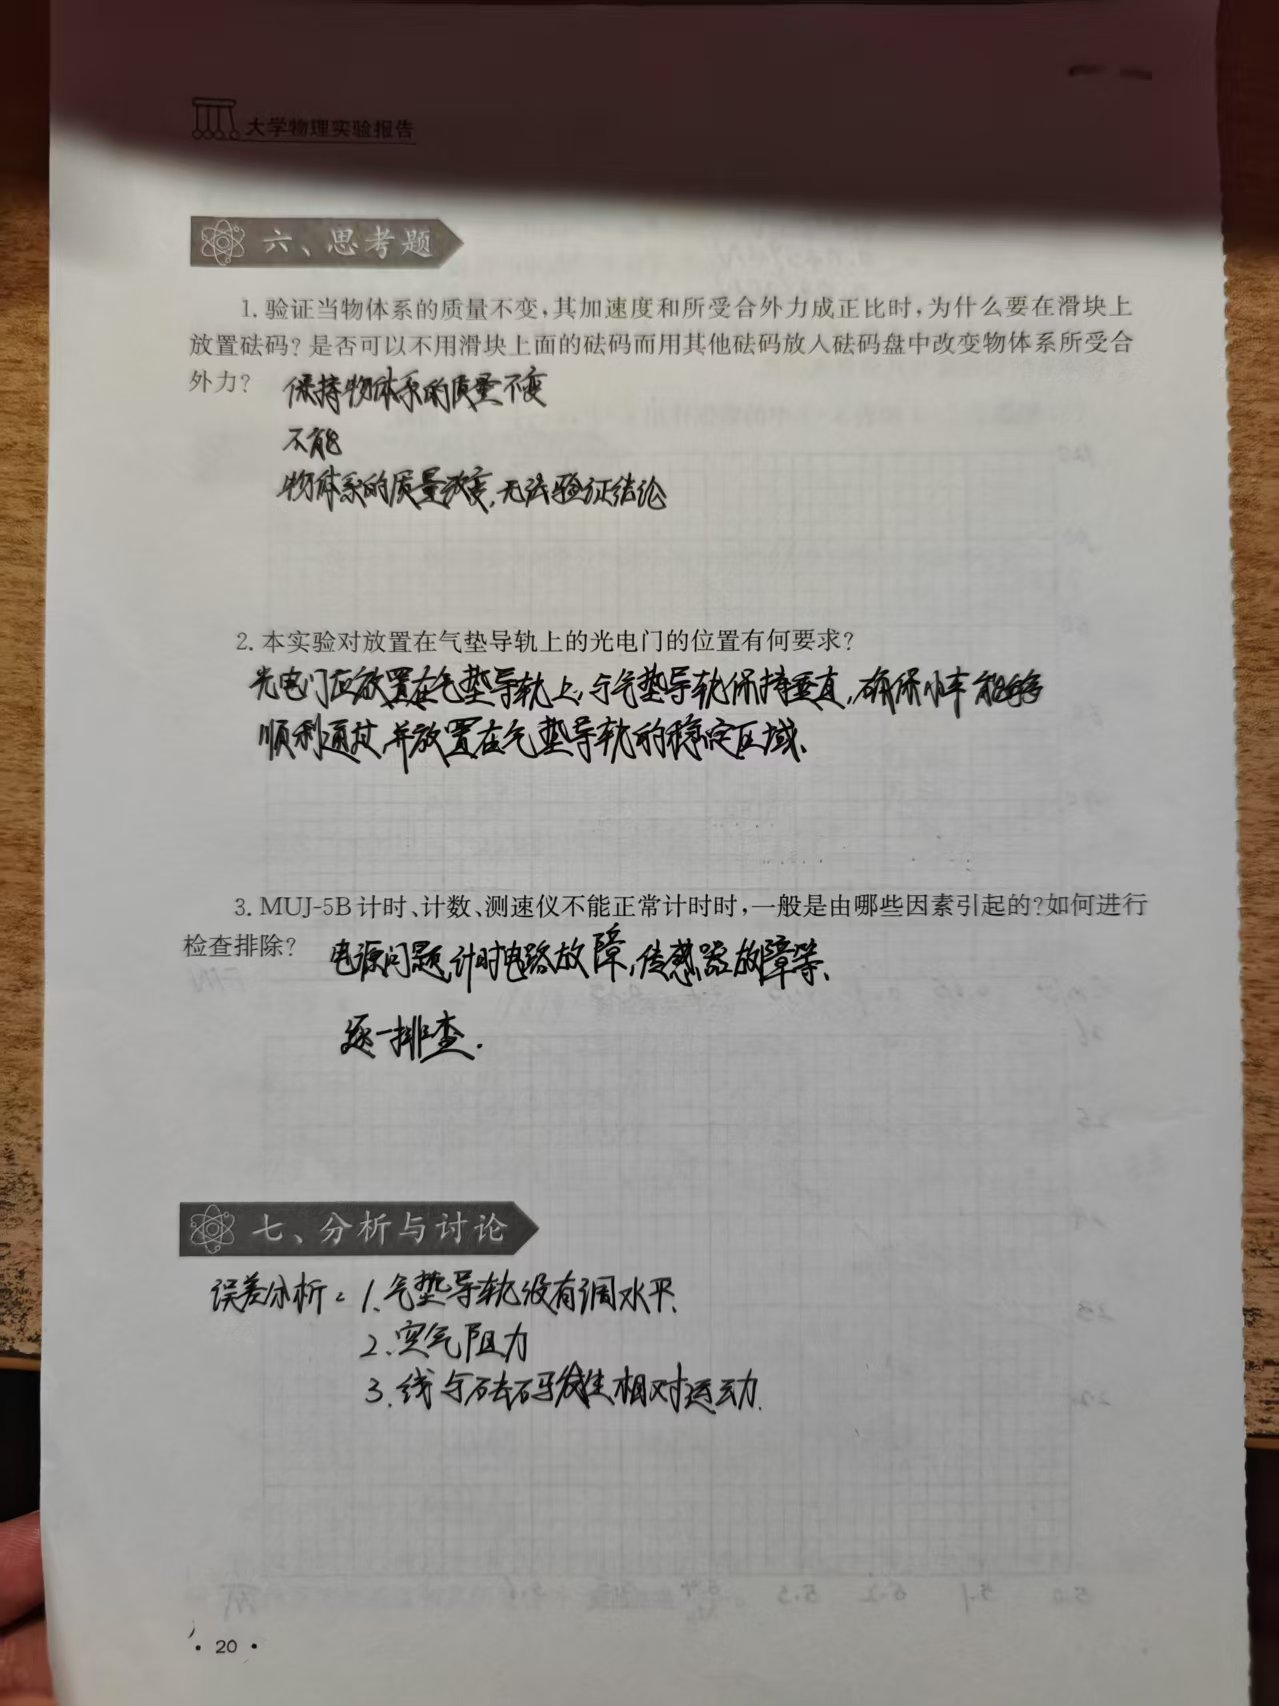 大学物理实验报告
六、思考题
1. 验证当物体系的质量不变,其加速度和所受合外力成正比时,为什么要在滑块上
放置砝码? 是否可以不用滑块上面的砝码而用其他砝码放入砝码盘中改变物体系所受合
外力? 保持物体系的质量不变
不能
物体系的质量改变,无法验证结论
2. 本实验对放置在气垫导轨上的光电门的位置有何要求?
光电门应放置在气垫导轨上,与气垫导轨保持垂直,确保小车能够
顺利通过,并放置在气垫导轨的稳定区域、
3. MUJ-5B计时、计数、测速仪不能正常计时时,一般是由哪些因素引起的?如何进行
检查排除? 电源问题,计时电路故障,传感器故障等、
逐一排查.
七、分析与讨论
误差分析: 1、气垫导轨没有调水平、
2、空气阻力
3、线与砝码发生相对运动.
· 20 ·